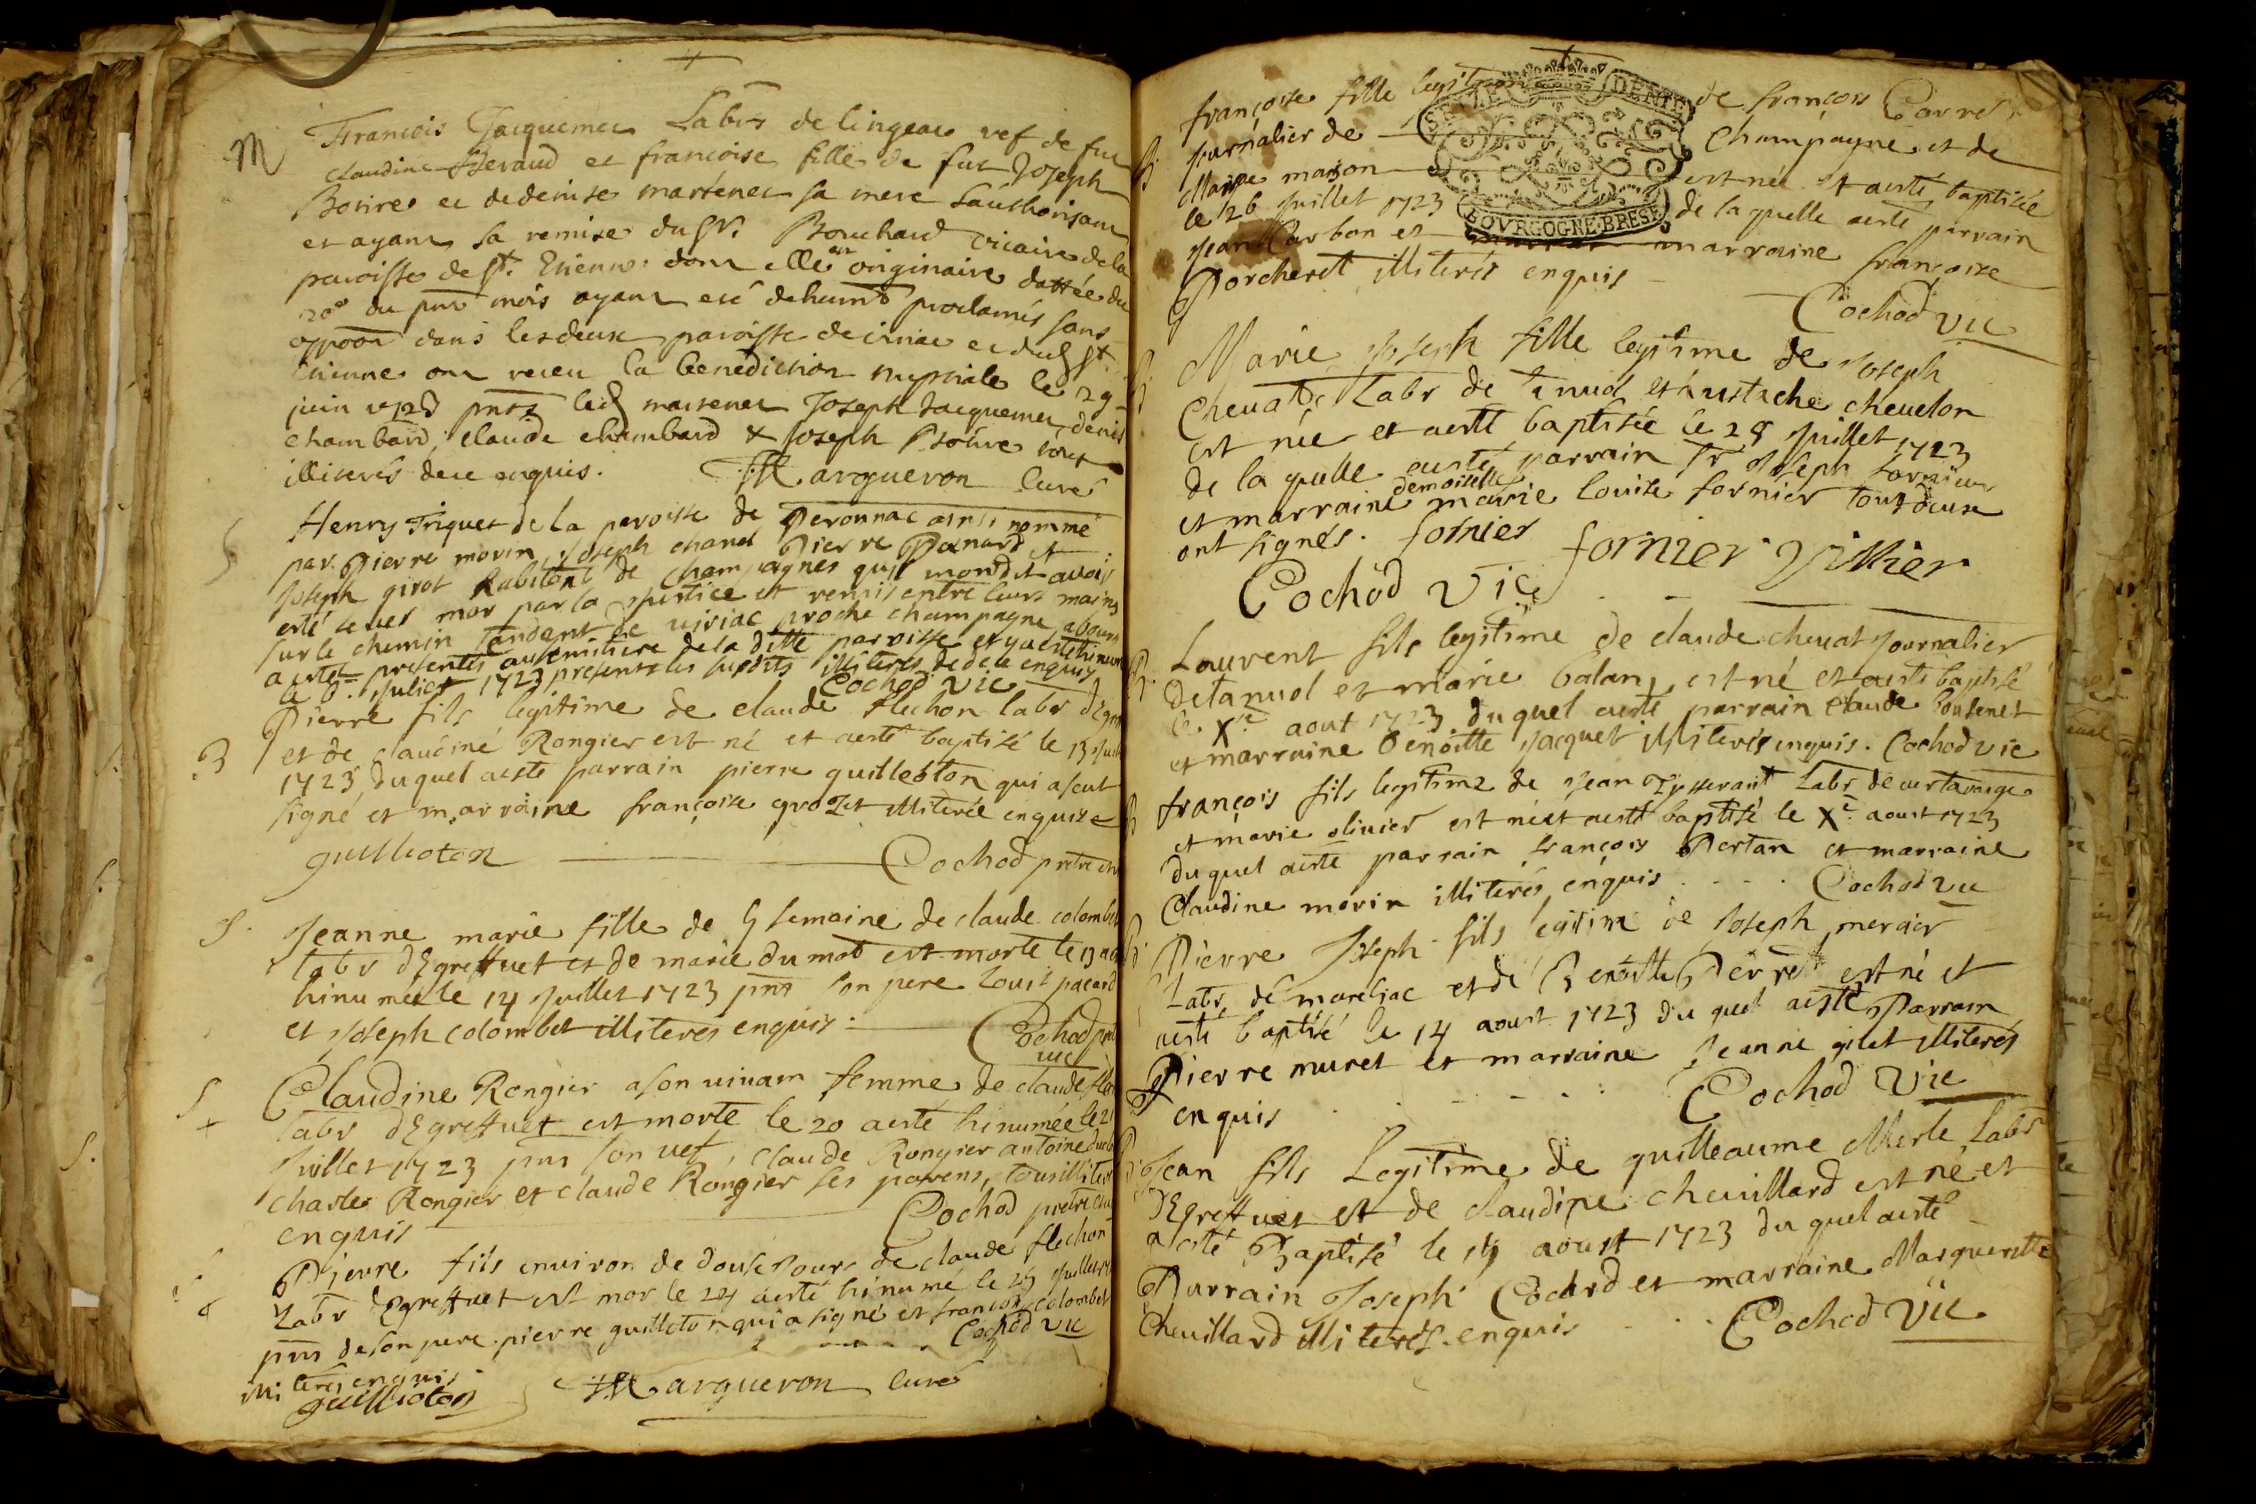 M
François Jacquemet Labr de lingeat vef de fut
claudine Beraud et francoise fille de fut Joseph
Borire et de denise martenet sa mere L'authorisant
et ayant sa remise du Sr. Bouchard vicaire de la
paroisse de St. Etienne dont elle est originaire dattée du
20e du pnt mois ayant esté dehumt proclamés sans
oppoon dans les deux paroisse de et dud St.
Etienne ont receu la benediction nuptiale le 29
juin presz led martenet Joseph Jacquemet, denis
chambard, claude chambard & Joseph Borire tout
illiterés de ce enquis. Margueron Curé
S
Henry Triquet de la paroisse de Peronnac ainsi nommé
par Pierre morin, Joseph chanel Pierre Panard et
Joseph girot habitant de Champagnes qu'il mondit avoir
esté levés mor par la Justice et remis entre leurs mains
sur le chemin tendent de viriac proche champagne
a estet presentés au semitiere de la ditte paroisse et y a esté hinumé
le 6. Juliet 1723 presents les susdits illiteres de de ce enquis
Cochod vic
B
Pierre fils legitime de claude flechon labr
et de claudine Rongier est né et aesté baptisé le 13 Juil
1723 duquel aesté parrain pierre guilleston qui a sçut
signé et marraine françoise grozet illiterée enquise
guillioton Cochod pretre
S.
Jeanne marie fille de 5 semaine de claude colombet
labr d'Egreffuet et de marie du mot est morte le 13
hinumée le 14 Juillet 1723 pnts son pere louis pacard
et Joseph colombet illiterés enquis. Cochod
vic
S
+
Claudine Rongier a son vivam femme de claude
labr d'Egreffuet est morte le 20 aesté hinumée le 21
Juillet 1723 pnt son vef, claude Rongier antoine
Charle Rongier et claude Rongier ses parens, tous
enquis Cochod pretre
Pierre fils environ de douse Jours de claude flechon
Labr d'Egreffuet est mor le 24 aesté hinumé le 25 Juillet
pnts de son pere. pierre guilleton qui a signé et françois colombet
illiteres enquis Cochod vic
guillioton Margueron Curé
françoise fille legitime de françois Carret
GENERALITE DENIE BOVRGOGNE·BRESE
B.
Journalier de Champagne et de
Marie mason est née et aesté baptisée
le 26 Juillet 1723 de laquelle aesté parrain
Jean Carbon et marraine françoise
Porcheret illiterés enquis
Cochod vic
B
Marie Joseph fille legitime de Joseph
Chevat Labr de Tanuol et anstache chevelon
est née et aesté baptisée le 28 Juillet 1723
de laquelle aesté parrain Sr Joseph fornier
et marraine demoiselle marie louise fornier tous deux
ont signés. fornier fornier Villier
Cochod Vic
B.
Laurent fils legitime de claude chevat Journalier
de tanuol et marie balan, est né et aesté baptisé
le Xe aout 1723 duquel aesté parrain claude boutenet
et marraine Benoitte Jacquet illiterés enquis. Cochod vic
B
françois fils legitime de Jean Tysserant Labr de certarange
et marie olivier est né et aesté baptisé le Xe aoust 1723
duquel aesté parrain françois Pertan et marraine
Claudine morin illiterés enquis Cochod vic
B.
Pierre Joseph fils legitime de Joseph mercier
Labr de mareliac et de Benoitte Perret est né et
aesté baptisé le 14 aoust 1723 du quel aesté Parrain
Pierre muret et marraine Jeanne gilet illiterés
enquis Cochod Vic
B
Jean fils Legitime de guilleaume Merle Labr
d'Egreffuet et de claudine chevillard est né et
a esté Baptisé le 15 aoust 1723 du quel aesté
Parrain Joseph Cochrd et marraine Marguerette
Chevillard illiterés enquis Cochod Vic